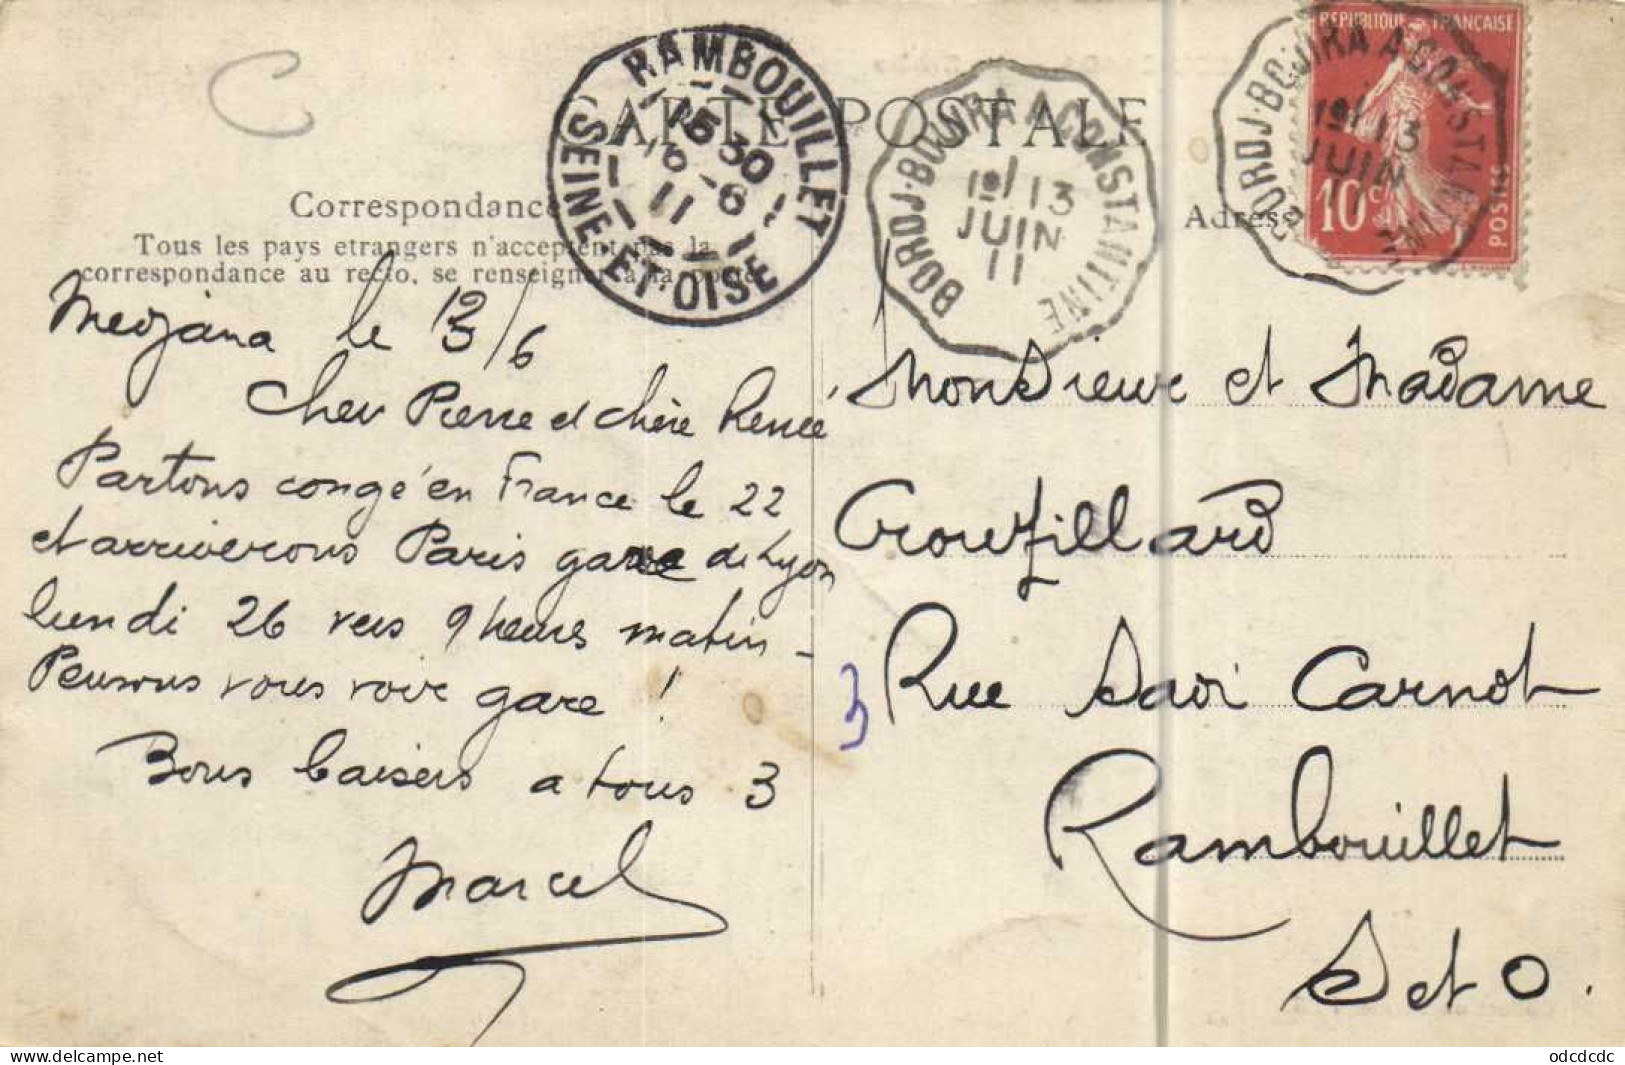 CARTE POSTALE
Correspondance
Adresse
Tous les pays etrangers n'acceptent pas la
correspondance au recto, se renseigner à la poste
RAMBOUILLET
15 30
16 - 6
11
SEINE-ET-OISE
BORDJ-BOUIRA A CONSTANTINE
1º/ 13
JUIN
11
BORDJ-BOUIRA A CONSTANTINE
1º/ 13
JUIN
11
REPUBLIQUE FRANÇAISE
10 c
POSTES
Medjana le 13/6
Cher Pierre et chère Renée
Partons congé en France le 22
et arriverons Paris gare de Lyon
lundi 26 vers 9 heures matin -
Pensons vous voir gare !
Bons baisers a tous 3
Marcel
Monsieur et Madame
Crouzillard
3 Rue Sadi Carnot
Rambouillet
S et O.
www.delcampe.net
odcdcdc